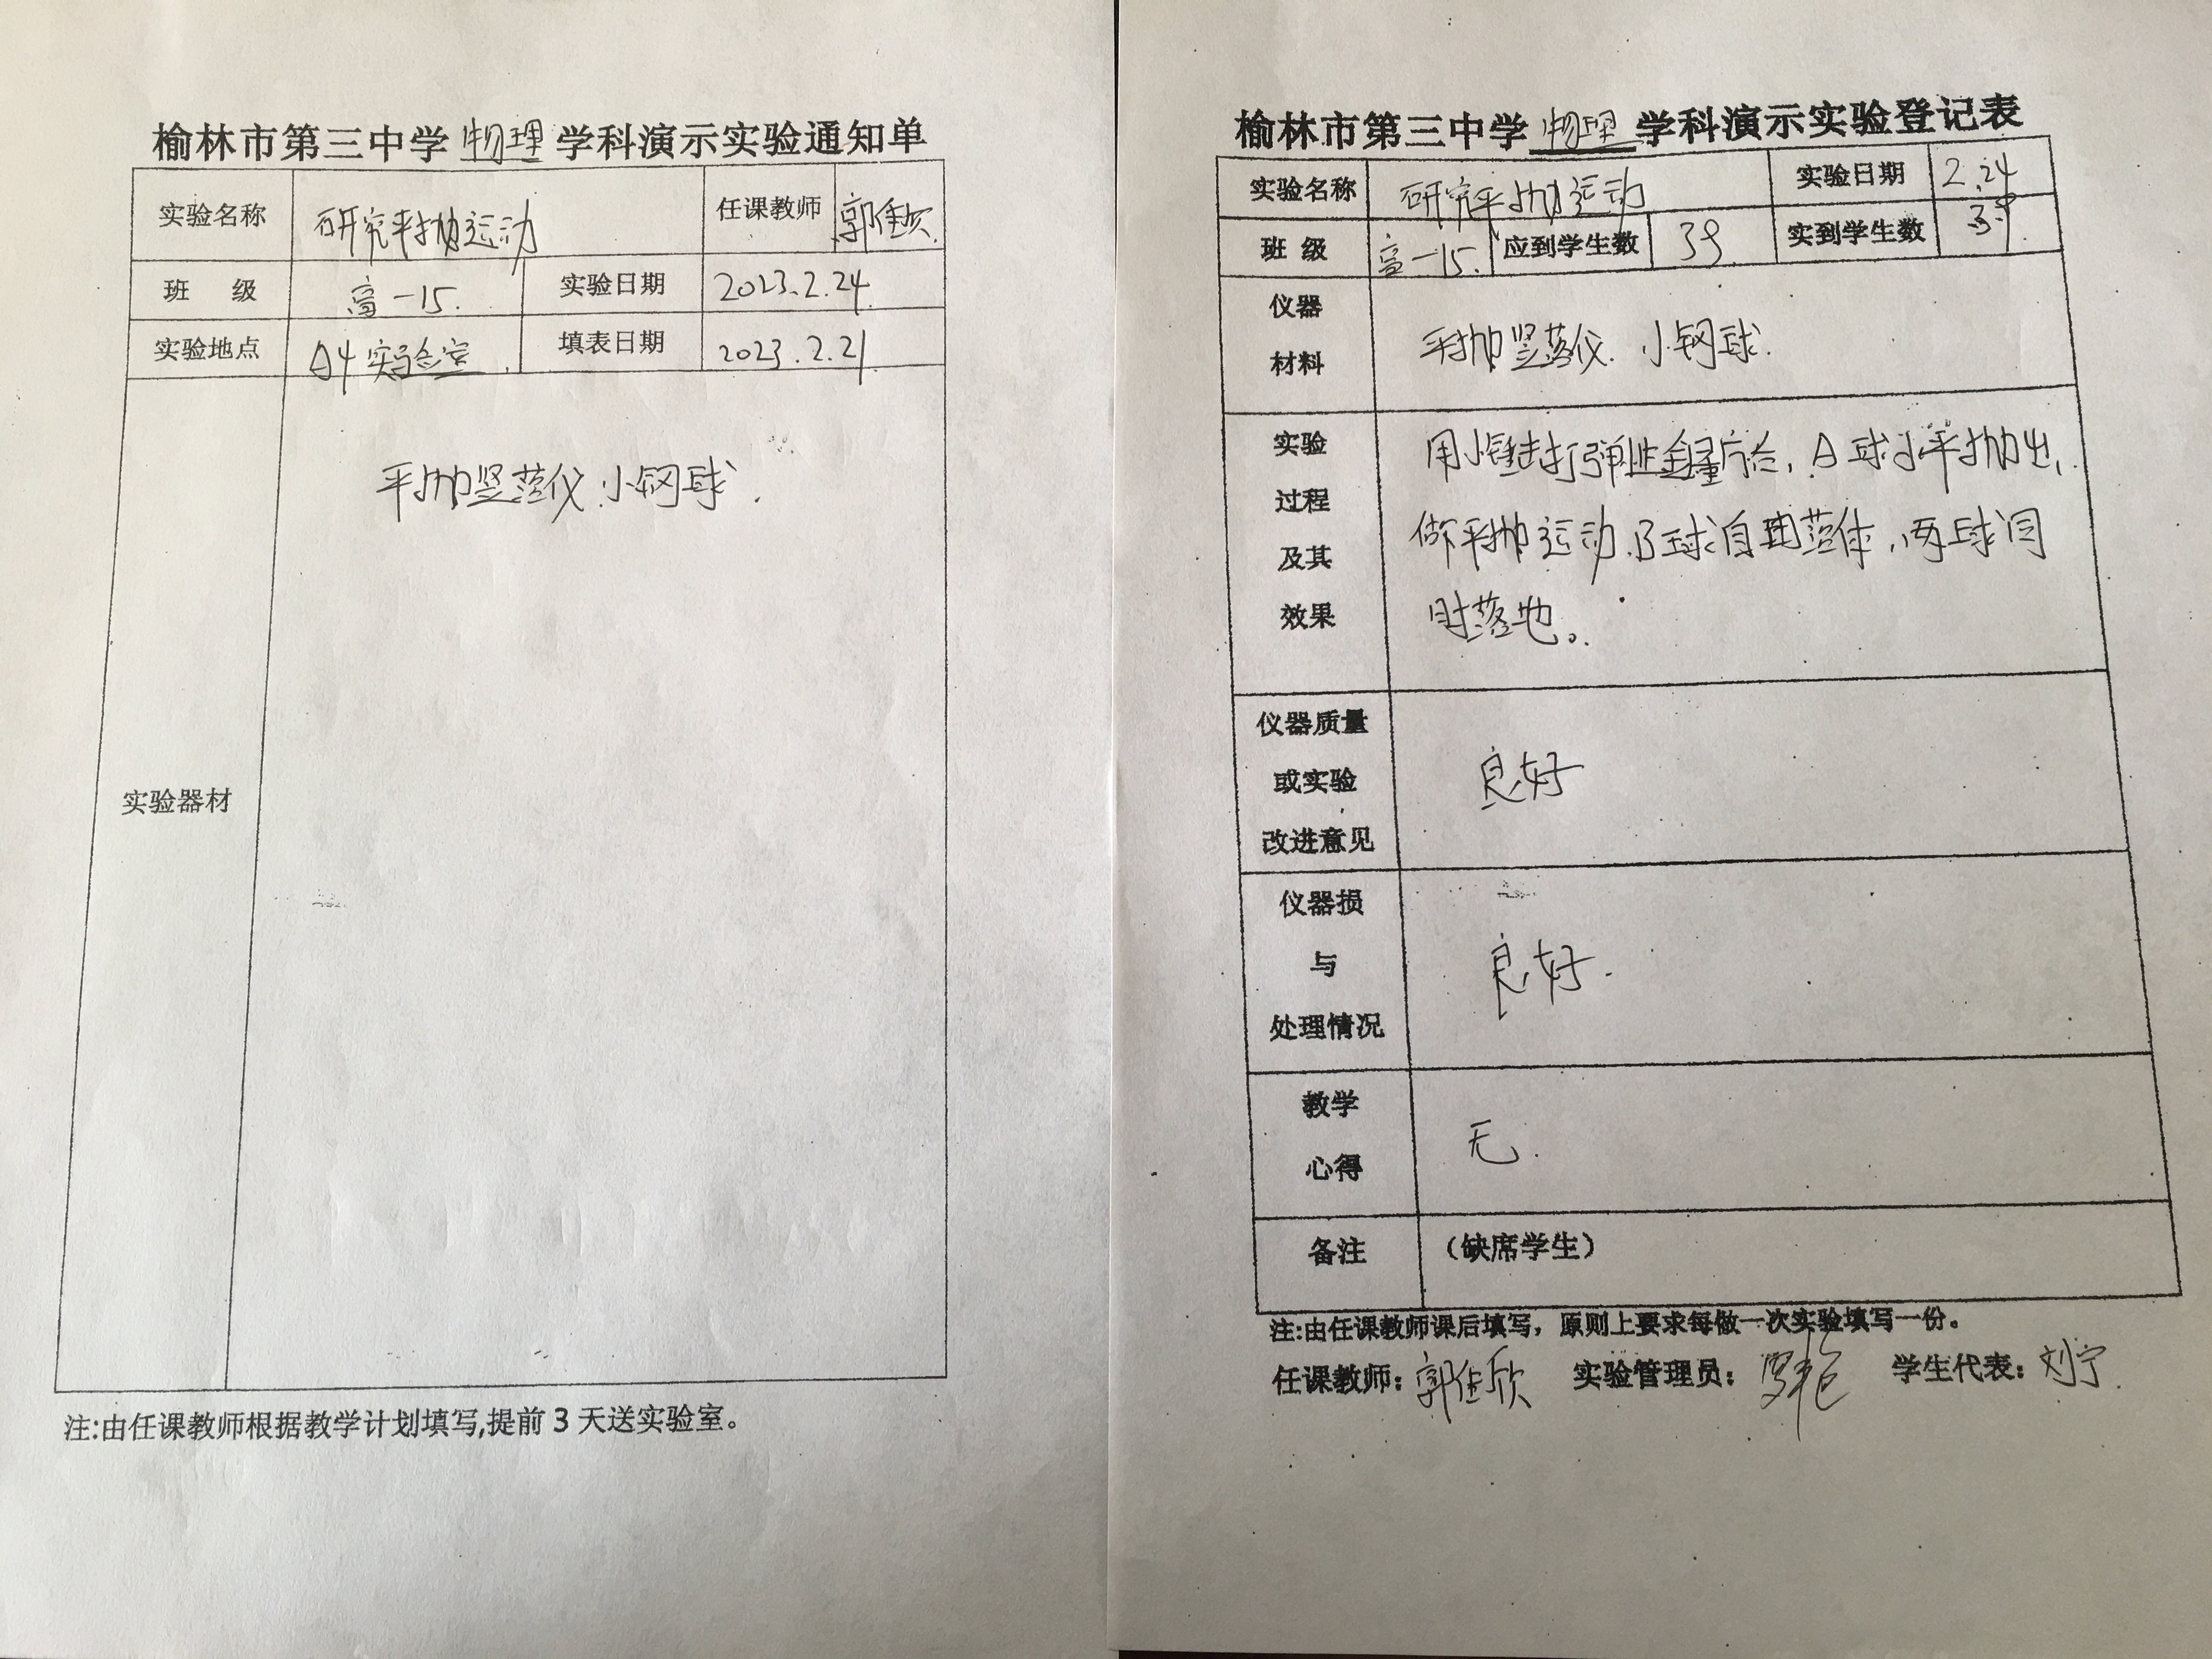 榆林市第三中学 物理 学科演示实验通知单
实验名称 研究平抛运动 任课教师 郭佳欣
班 级 高一15. 实验日期 2023.2.24.
实验地点 A4实验室. 填表日期 2023.2.21
实验器材 平抛竖落仪.小钢球.
注:由任课教师根据教学计划填写,提前3天送实验室。
榆林市第三中学 物理 学科演示实验登记表
实验名称 研究平抛运动 实验日期 2.24
班 级 高一15. 应到学生数 39 实到学生数 39.
仪器
材料
平抛竖落仪. 小钢球.
实验
过程
及其
效果
用小锤击打弹性金属片后,A球水平抛出,
做平抛运动.B球自由落体,两球同
时落地。
仪器质量
或实验
改进意见
良好
仪器损
与
处理情况
良好.
教学
心得
无.
备注 (缺席学生)
注:由任课教师课后填写，原则上要求每做一次实验填写一份。
任课教师: 郭佳欣 实验管理员: 学生代表: 刘宁.